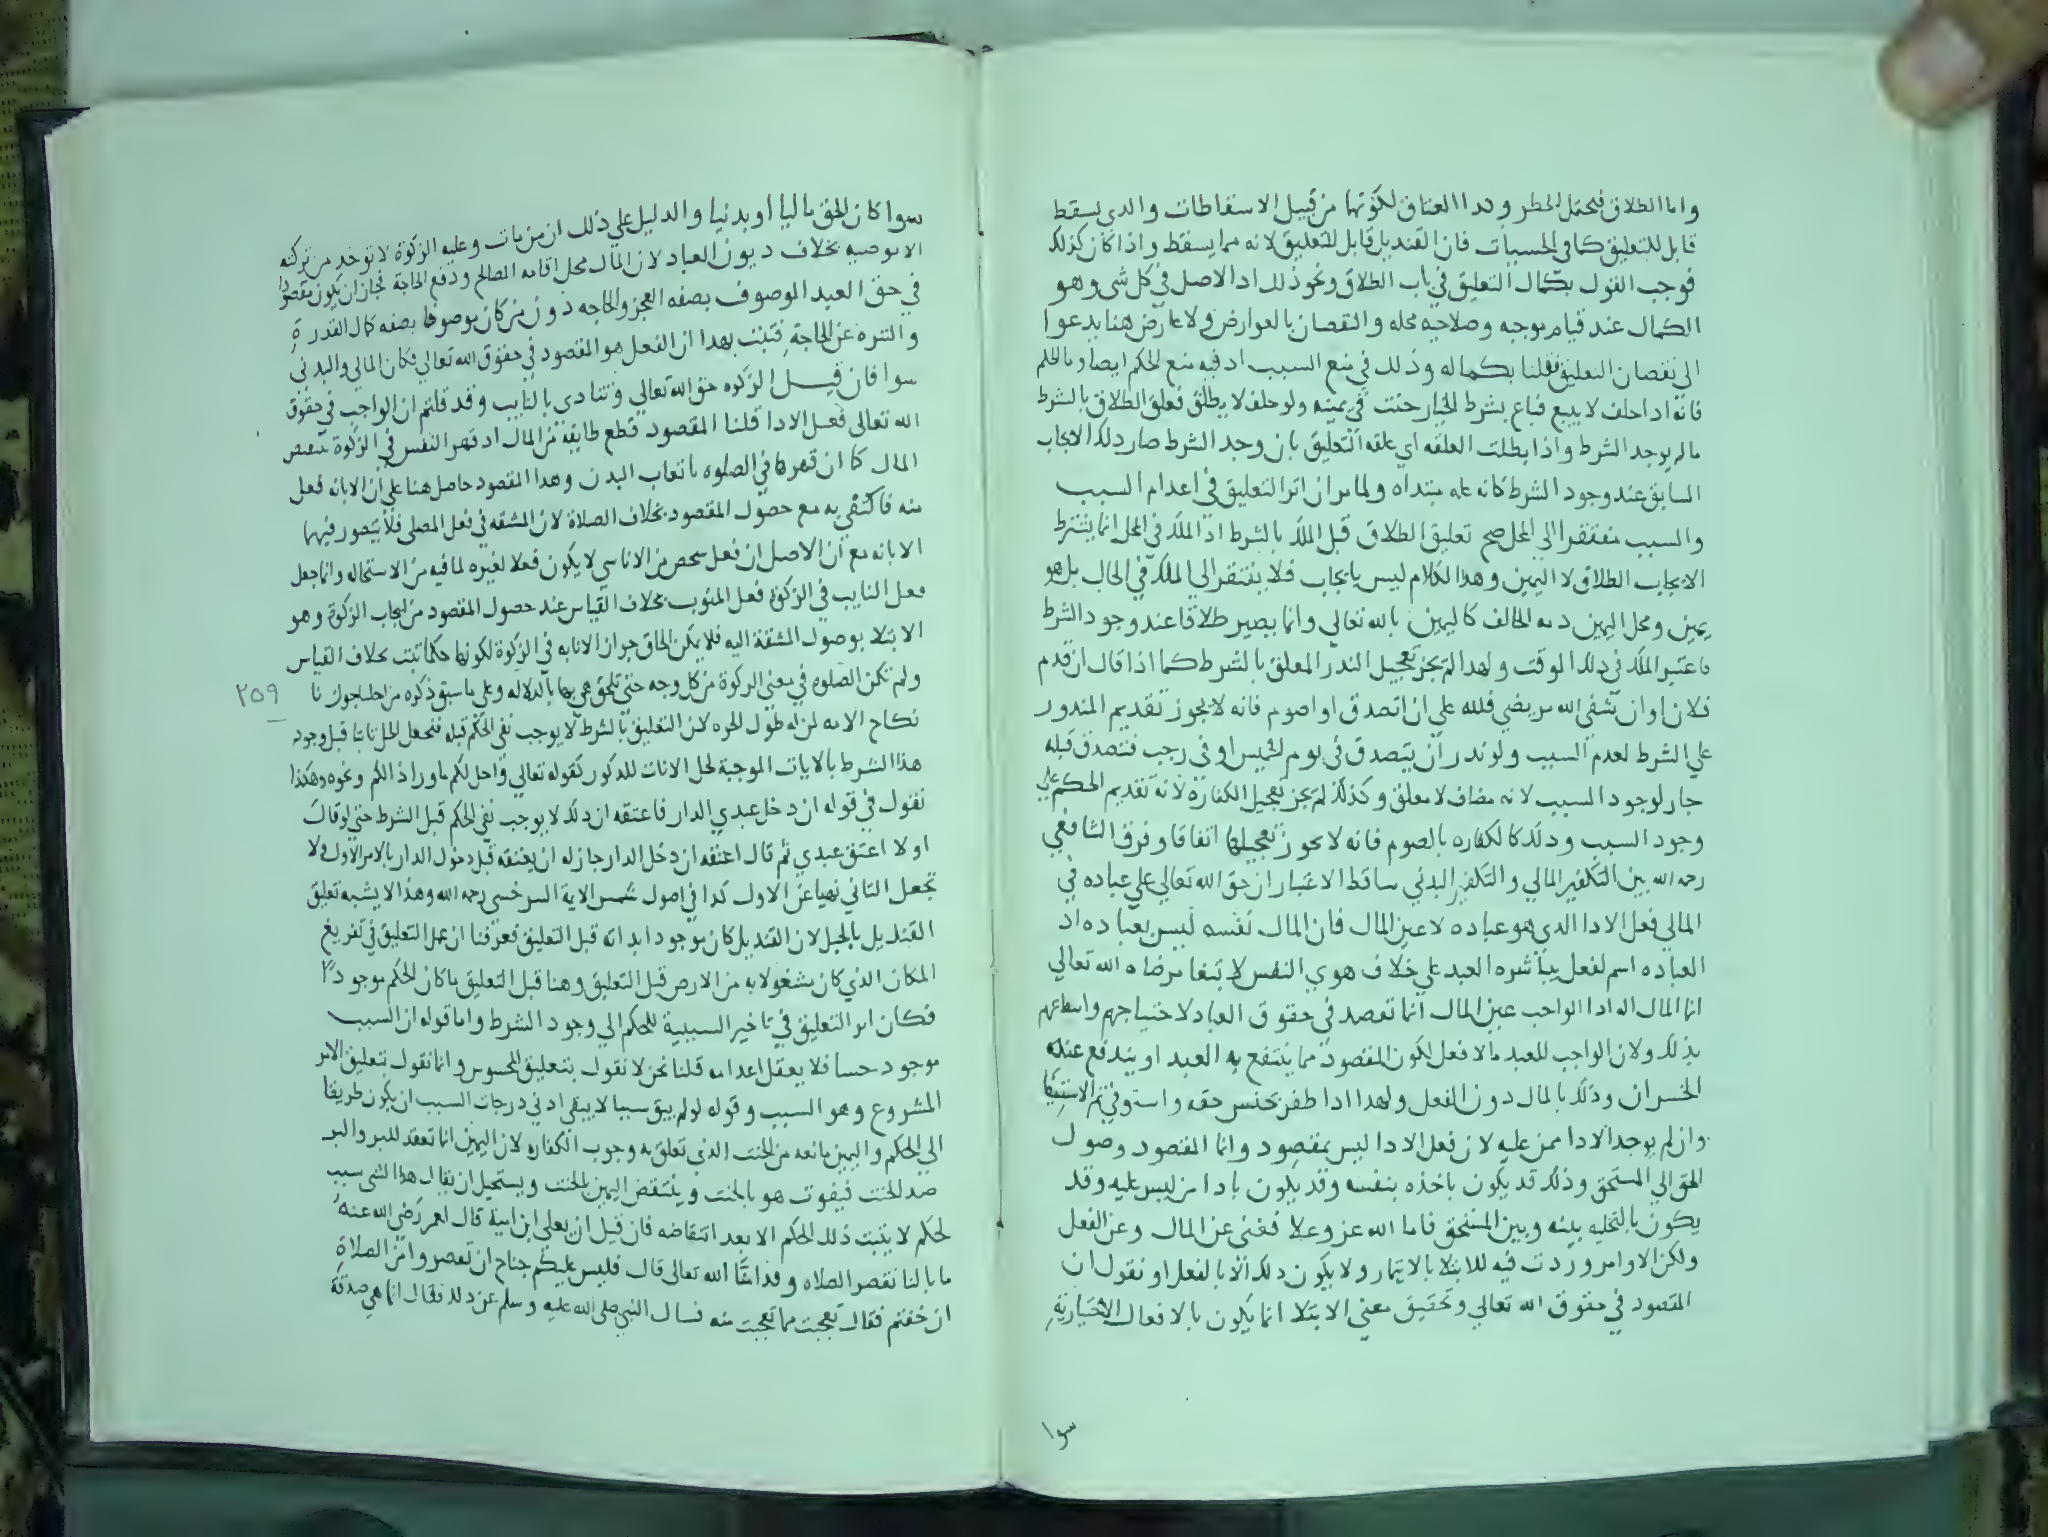 واما الطلاق فيحتمل الخطر وكذا العتاق لكونها من قبيل الاسقاطات والذي يسقط
قابل للتعليق كما في الحسيات فان القنديل قابل للتعليق لانه مما يسقط واذا كان كذلك
فوجب القول بكمال التعليق في باب الطلاق ونحو ذلك اد الاصل في كل شي وهو
الكمال عند قيام موجبه وصلاحية محله والنقصان بالعوارض ولا عارض هنا يدعوا
الى نقصان التعليق فقلنا بكماله وذلك في منع السبب اد فيه منع الحكم ايضا
فانه اداحلف لا يبيع فباع بشرط الخيار حنث في يمينه ولو حلف لا يطلق فعلق الطلاق بالشرط
ما لم يوجد الشرط واذا بطلت العلقه اي علقه التعليق بان وجد الشرط صار دلك الايجاب
السابق عند وجود الشرط كانه علة مبتداه ولما مر ان اثر التعليق في اعدام السبب
والسبب مفتقر الى المحل صح تعليق الطلاق قبل الملك بالشرط اذ الملك في المحل انما يشترط
لايجاب الطلاق لا اليمين وهذا الكلام ليس بايجاب فلا يفتقر الي الملك في الحال بل هو
يمين ومحل اليمين دمه الحالف كاليمين بالله تعالي وانما يصير طلاقا عند وجود الشرط
فاعتبر الملك في ذلك الوقت ولهدا لم يجز تعجيل الندر المعلق بالشرط كما اذا قال ان قدم
فلان او ان شفى الله مريضي فلله علي ان اتصدق او اصوم فانه لا يجوز تقديم المندور
علي الشرط لعدم السبب ولو ندر ان يتصدق في يوم الخميس او في رجب فتصدق قبله
جاز لوجود السبب لانه مضاف لا معلق وكذلك لم يجز تعجيل الكفارة لانه تقديم الحكم علي
وجود السبب ودلك كالكفاره بالصوم فانه لا يجوز تعجيلها اتفاقا وفرق الشافعي
رحمه الله بين التكفير المالي والتكفير البدني ساقط الاعتبار ان حق الله تعالي علي عباده في
المالي فعل الادا الذي هو عباده لا عين المال فان المال نفسه ليس بعباده اد
العباده اسم لفعل يباشره العبد علي خلاف هوي النفس لابتغا مرضاه الله تعالي
انما المال اله ادا الواجب عين المال انما تقصد في حقوق العباد لاحتياجهم وانتفاعهم
بذلك ولان الواجب للعبد مالا فعل لكون المقصود مما ينتفع به العبد او يندفع عنه
الخسران وذلك بالمال دون الفعل ولهدا ادا ظفر بجنس حقه واستوفي تم الاستيفا
وان لم يوجد الادا ممن عليه لان فعل الادا ليس بمقصود وانما المقصود وصول
الحق الي المستحق وذلك قد يكون باخذه بنفسه وقد يكون بادا من ليس عليه وقد
يكون بالتخليه بينه وبين المستحق فاما الله عز وعلا فغني عن المال وعن الفعل
ولكن الاوامر وردت فيه للابتلا بالايتمار ولا يكون دلك الا بالفعل او نقول ان
المقصود في حقوق الله تعالي وتحقيق معني الابتلا انما يكون بالافعال الاختيارية
سوا
سوا كان الحق ماليا او بدنيا والدليل علي ذلك ان من مات وعليه الزكوة لا توخد من تركته
الا بوصيه بخلاف ديون العباد لان المال محل اقامه المصالح ودفع الحاجة فجاز ان يكون مقصودا
في حق العبد الموصوف بصفه العجز والحاجه دون من كان موصوفا بصفه كمال القدرة
والتنزه عن الحاجة فثبت بهدا ان الفعل هو المقصود في حقوق الله تعالي فكان المالي والبدني
سوا فان قيل الزكوه حق الله تعالي وتتادى بالنايب وقد قلتم ان الواجب في حقوق
الله تعالى فعل الادا قلنا المقصود قطع طايفة من المال اد قهر النفس في الزكوة
المال كما ان قهرها في الصلوه باتعاب البدن وهدا المقصود حاصل هنا علي ان الانابه فعل
منه فاكتفي به مع حصول المقصود بخلاف الصلاة لان المشقه في فعل المصلي فلا يتصور فيها
الانابه مع ان الاصل ان فعل شخص من الاناسي لا يكون فعلا لغيره لما فيه من الاستحاله وانما جعل
فعل النايب في الزكوة فعل المنوب بخلاف القياس عند حصول المقصود من ايجاب الزكوة وهو
الابتلا بوصول المشقة اليه فلا يمكن الحاق جواز الانابه في الزكوة لكونها حكما ثبت بخلاف القياس
ولم تكن الصلوه في معنى الزكوة من كل وجه حتى تلحق هي بها بالدلاله وعلي ما سبق ذكره
نكاح الامه لمن له طول الحره لان التعليق بالشرط لا يوجب نفي الحكم قبله فنجعل الحل ثابتا قبل وجود
هذا الشرط بالايات الموجبة لحل الاناث للدكور كقوله تعالي واحل لكم ما وراذ الكم ونحوه وهكذا
نقول في قوله ان دخل عبدي الدار فاعتقه ان دلك لا يوجب نفي الحكم قبل الشرط حتي لو قال
اولا اعتق عبدي ثم قال اعتقه ان دخل الدار جاز له ان يعتقه قبل دخول الدار بالامر الاول ولا
نجعل الثاني نهيا عن الاول كدا في اصول شمس الاية السرخسي رحمه الله وهذا لا يشبه تعليق
القنديل بالحبل لان القنديل كان موجودا بداته قبل التعليق فعرفنا ان عمل التعليق في تفريغ
المكان الذي كان مشغولا به من الارض قبل التعليق وهنا قبل التعليق ما كان الحكم موجودا
فكان اثر التعليق في تاخير السببية للحكم الي وجود الشرط واما قوله ان السبب
موجود حسا فلا يعقل اعدامه قلنا نحن لا نقول بتعليق المحسوس وانما نقول بتعليق الامر
المشروع وهو السبب وقوله لو لم يبق سببا لا يبقي ادني درجات السبب ان يكون طريقا
الي الحكم واليمين مانعه من الحنث الذي تعلق به وجوب الكفاره لان اليمين انما تعقد للبر والبر
ضد الحنث فيفوت هو بالحنث وينتقض اليمين بالحنث ويستحيل ان يقال هذا الشي سبب
لحكم لا يثبت ذلك الحكم الا بعد انتقاضه فان قيل ان يعلي ابن امية قال لعمر رضي الله عنه
ما بالنا نقصر الصلاه وقد امنا الله تعالى قال فليس عليكم جناح ان تقصروا من الصلاة
ان خفتم فقال تعجبت مما تعجبت منه فسال النبي صلى الله عليه وسلم عن دلك فقال انما هي صدقة
٢٥٩